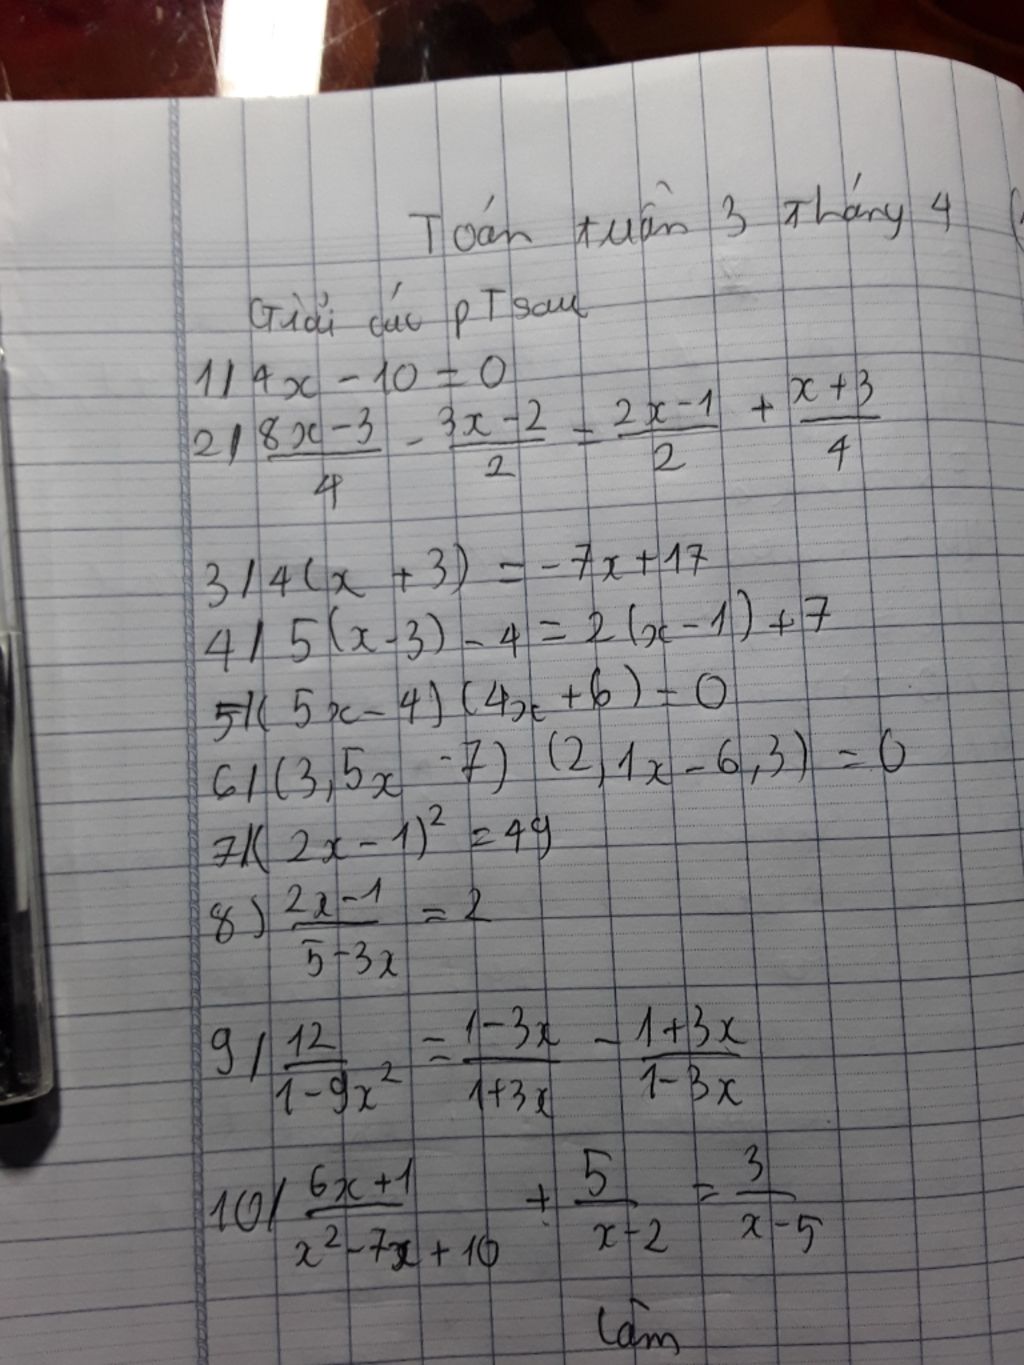 Toán tuần 3 tháng 4
Giải các pT sau
1/ 4x - 10 = 0
2/ (8x - 3)/4 - (3x - 2)/2 = (2x - 1)/2 + (x + 3)/4
3/ 4(x + 3) = -7x + 17
4/ 5(x - 3) - 4 = 2(x - 1) + 7
5/ (5x - 4)(4x + 6) = 0
6/ (3,5x - 7) (2,1x - 6,3) = 0
7/ (2x - 1)² = 49
8) (2x - 1)/(5 - 3x) = 2
9/ 12/(1 - 9x²) = (1 - 3x)/(1 + 3x) - (1 + 3x)/(1 - 3x)
10/ (6x + 1)/(x² - 7x + 10) + 5/(x - 2) = 3/(x - 5)
Làm